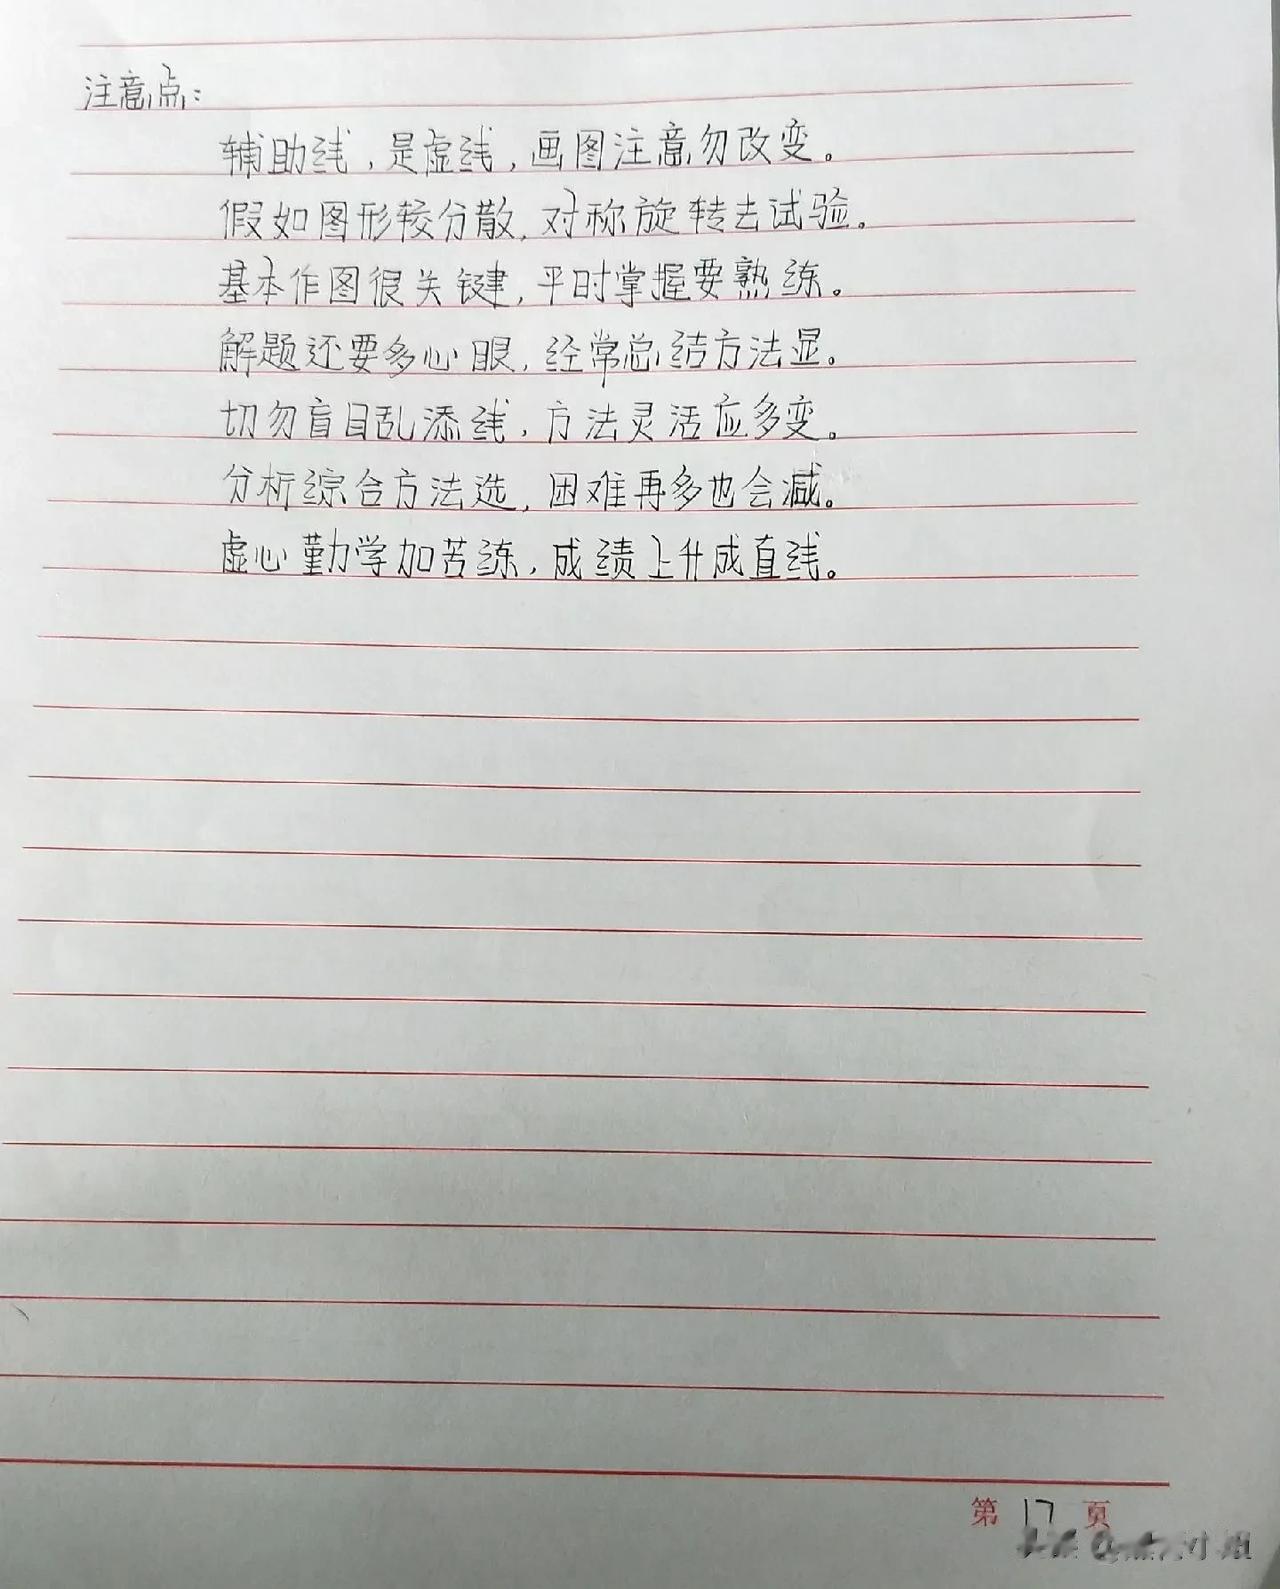 注意点：
辅助线，是虚线，画图注意勿改变。
假如图形较分散，对称旋转去试验。
基本作图很关键，平时掌握要熟练。
解题还要多心眼，经常总结方法显。
切勿盲目乱添线，方法灵活应多变。
分析综合方法选，困难再多也会减。
虚心勤学加苦练，成绩上升成直线。
第 17 页